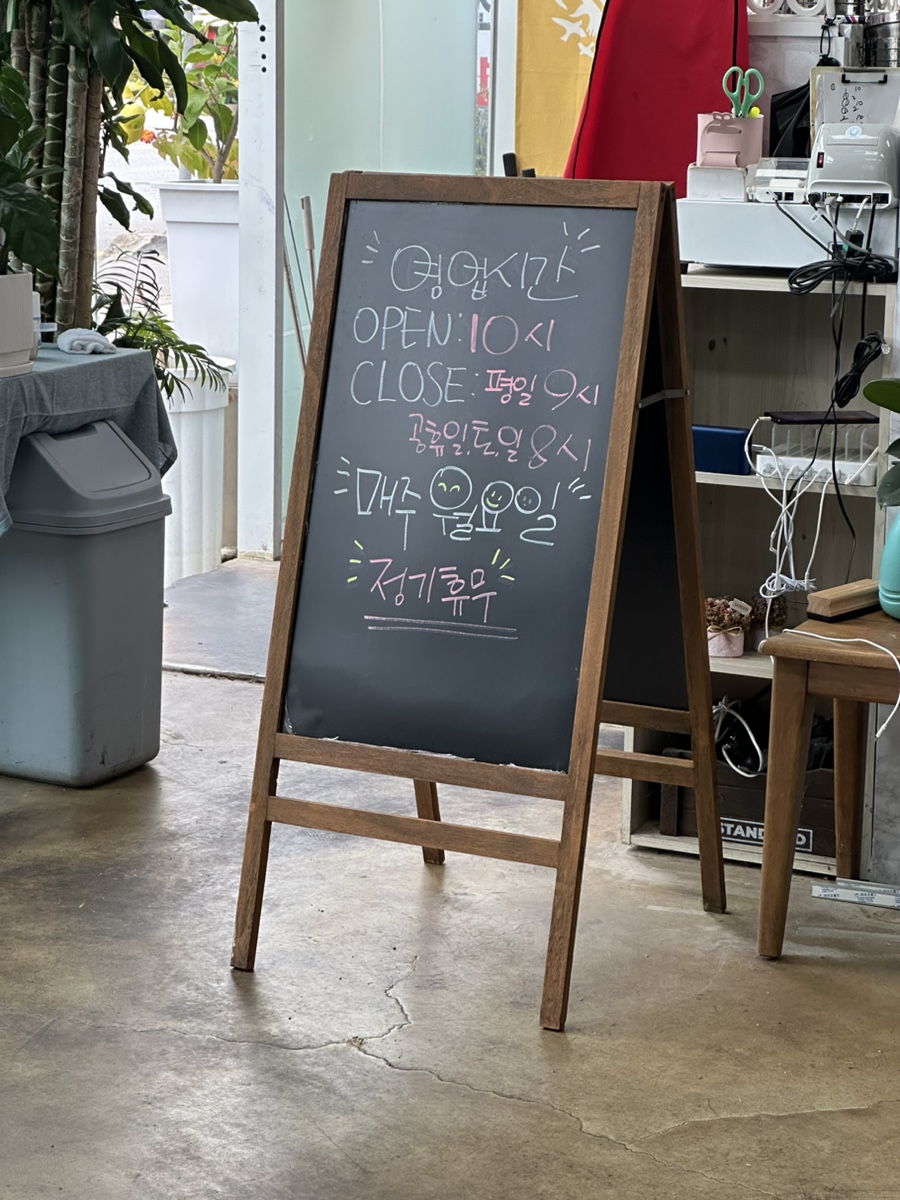 영업시간
OPEN: 10시
CLOSE: 평일 9시
공휴일,토,일 8시
매주 월요일
정기휴무